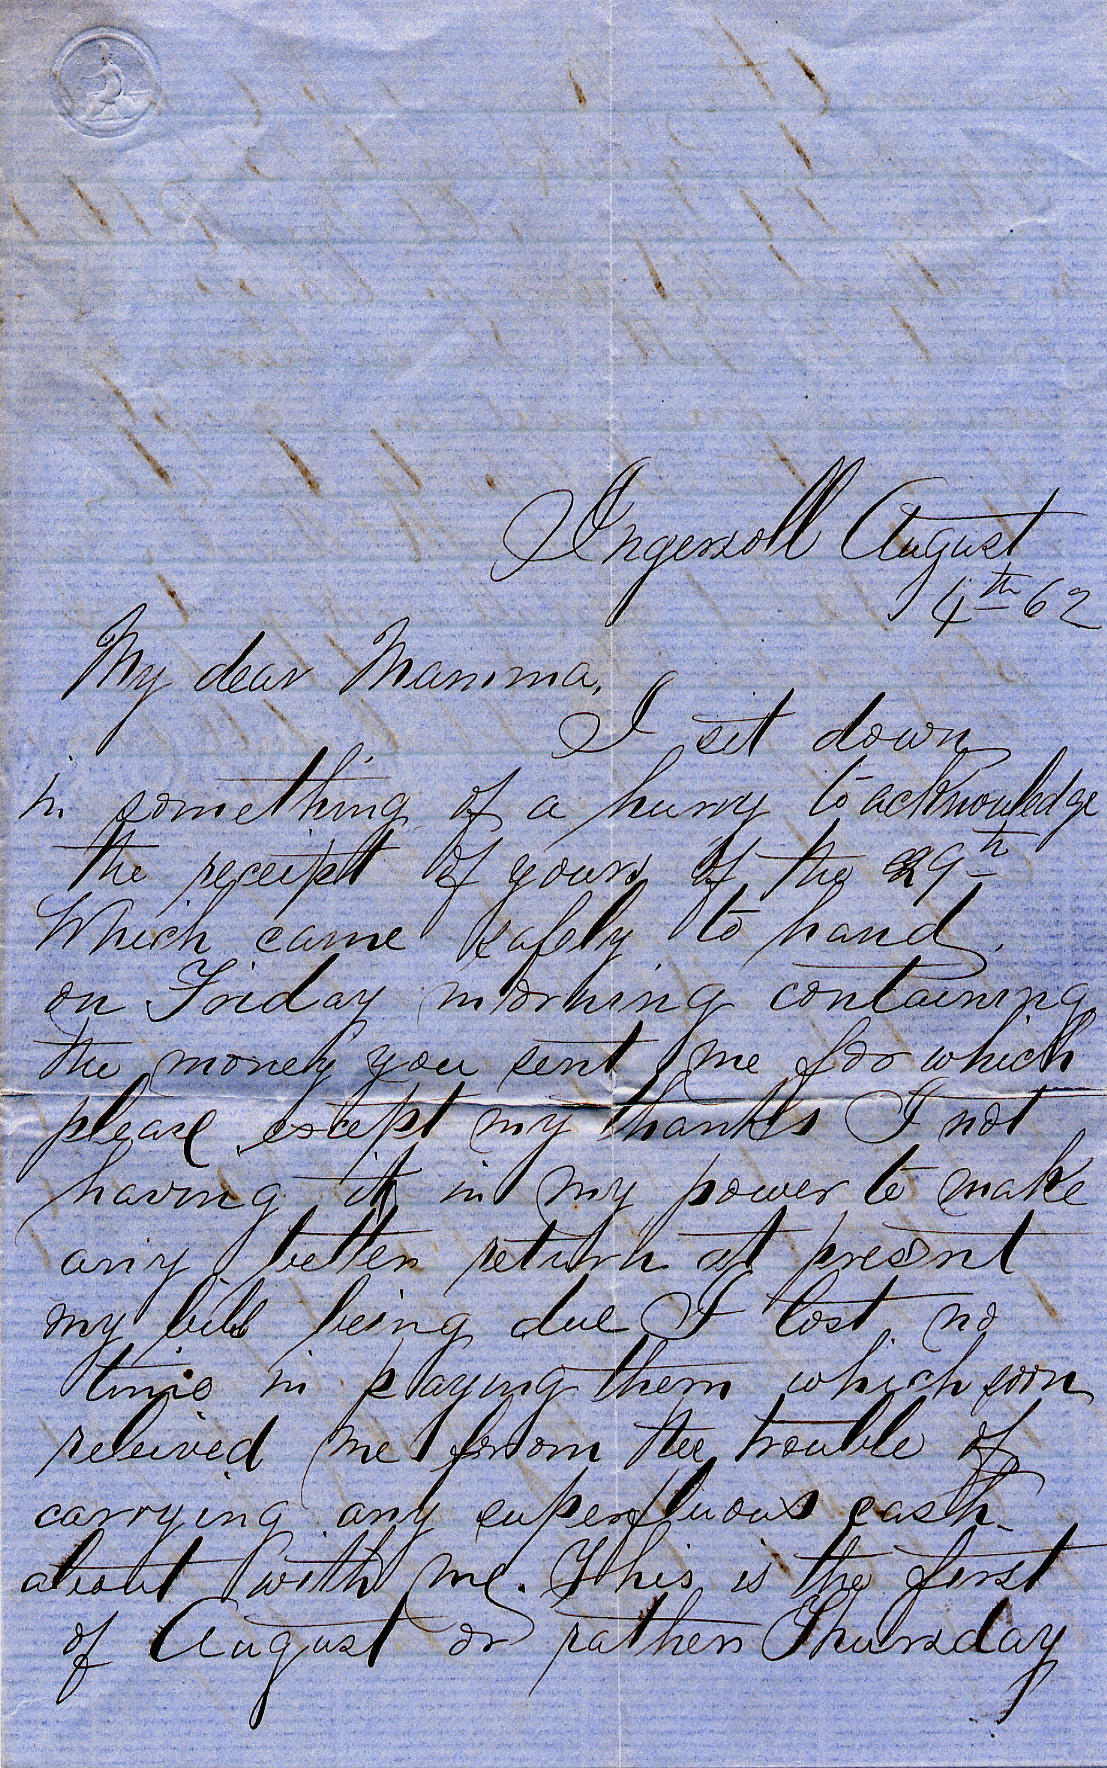 Ingersoll August
4th 62
My dear Mamma,
I sit down
in something of a hurry to acknowledge
the receipt of yours of the 29th
Which came safely to hand,
on Friday morning containing
the money you sent me for which
please except my thanks I not
having it in my power to make
any better return at present
my bills being due I lost no
time in paying them which soon
releived me from the trouble of
carrying any superfluous cash
about with me. This is the first
of August or rather Thursday